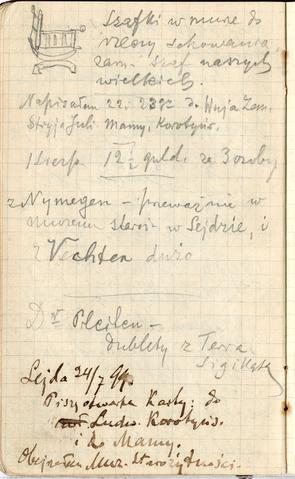 Szafki w murze do
rzeczy schowania,
zam. szaf naszych
wielkich.
Napisałem 22. do Wuja Zem.
Stryja Juli Mamy, Korotyńs.
1 Sierp. 12½ guld. za 3 osoby
z Nymegen – przeważnie w
muzeum staroż. w Lejdzie, i
z Vechten dużo
Dr Pleiten –
dublety z Terra
Sigillata
Lejda 24/7 99.
Piszę otwarte Karty: do
Ludw. Korotyńs.
i do Mamy.
Obejrzałem Muz. Starożytności.